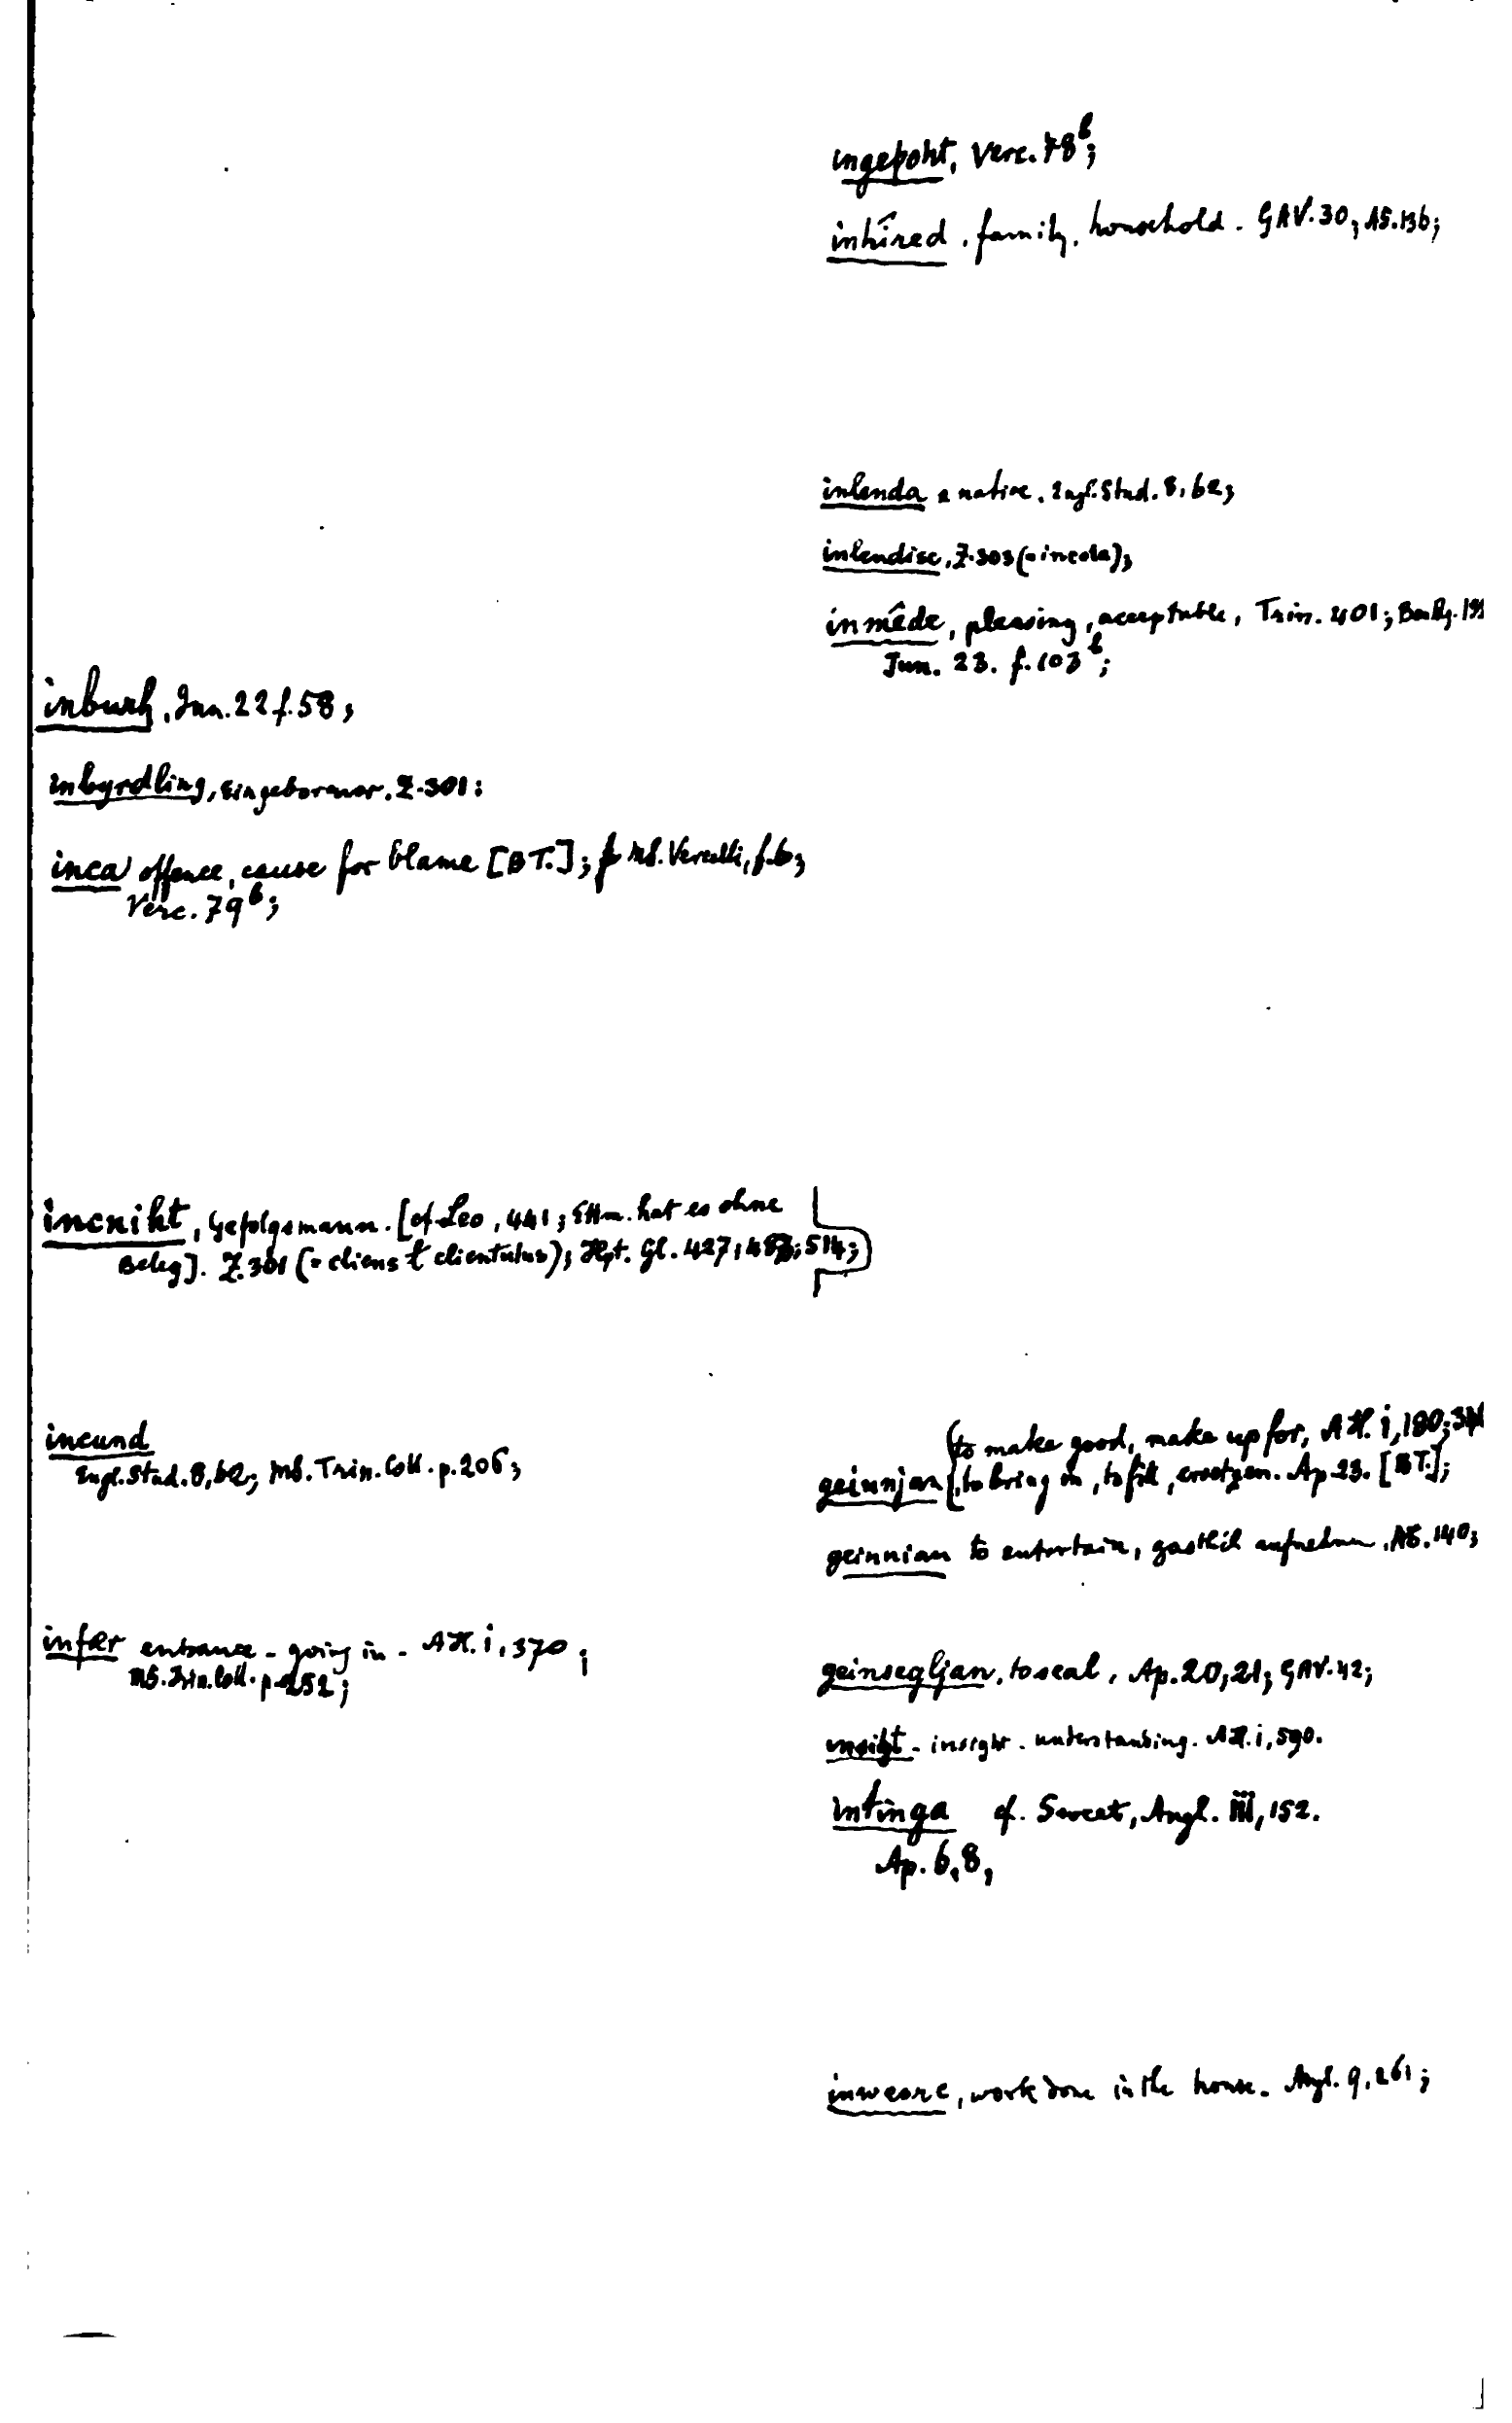 inburh, Jun. 22 f. 58;
inbyrdling, Eingeborener. Z. 301;
inca offence, cause for blame [BT.]; Ms. Vercelli, f. 6;
Verc. 79b;
incniht, Gefolgsmann. [cf Leo, 441; Ettm. hat es ohne
Beleg]. Z. 301 (= cliens ł clientulus); Hpt. Gl. 427; 514;
incund
Engl. Stud. 8, 62; MS. Trin. Coll. p. 206;
infær entrance - going in - AH. i, 370;
MS. Trin. Coll. p. 252;
ingeþoht, Verc. 78b;
inhîred, family, household. GAV. 30; AS. 136;
inlenda a native. Engl. Stud. 8, 62;
inlendisc, Z. 303 (= incola);
inmêde, pleasing, acceptable, Trin. 401;
Jun. 23. f. 103b;
(to make good, make up for, AH. i, 180;
geinnjan {, to bring in, to fill, ersetzen. Ap. 23. [BT.];
geinnian to entertain, gastlich aufnehmen, AS. 140;
geinsegljan, to seal, Ap. 20, 21; GAV. 42;
insiht - insight - understanding. AH. i, 590.
intinga cf. Sweet, Angl. iii, 152.
Ap. 6, 8,
inweorc, work done in the house - Angl. 9, 261;